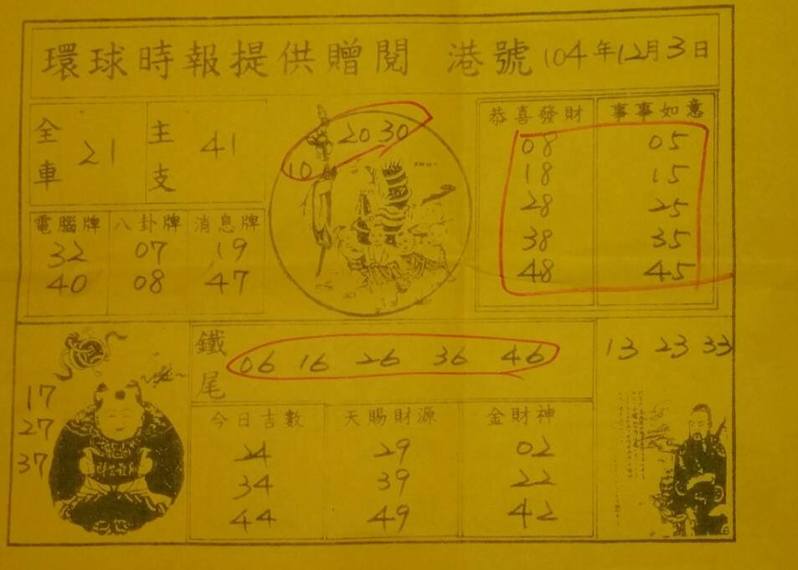 環球時報提供贈閱 港號 104年12月3日
全車 21 主支 41
10 20 30
恭喜發財 事事如意
08 05
18 15
28 25
38 35
48 45
電腦牌 八卦牌 消息牌
32 07 19
40 08 47
鐵尾 06 16 26 36 46
13 23 33
17
27
37
今日吉數 天賜財源 金財神
24 29 02
34 39 22
44 49 42